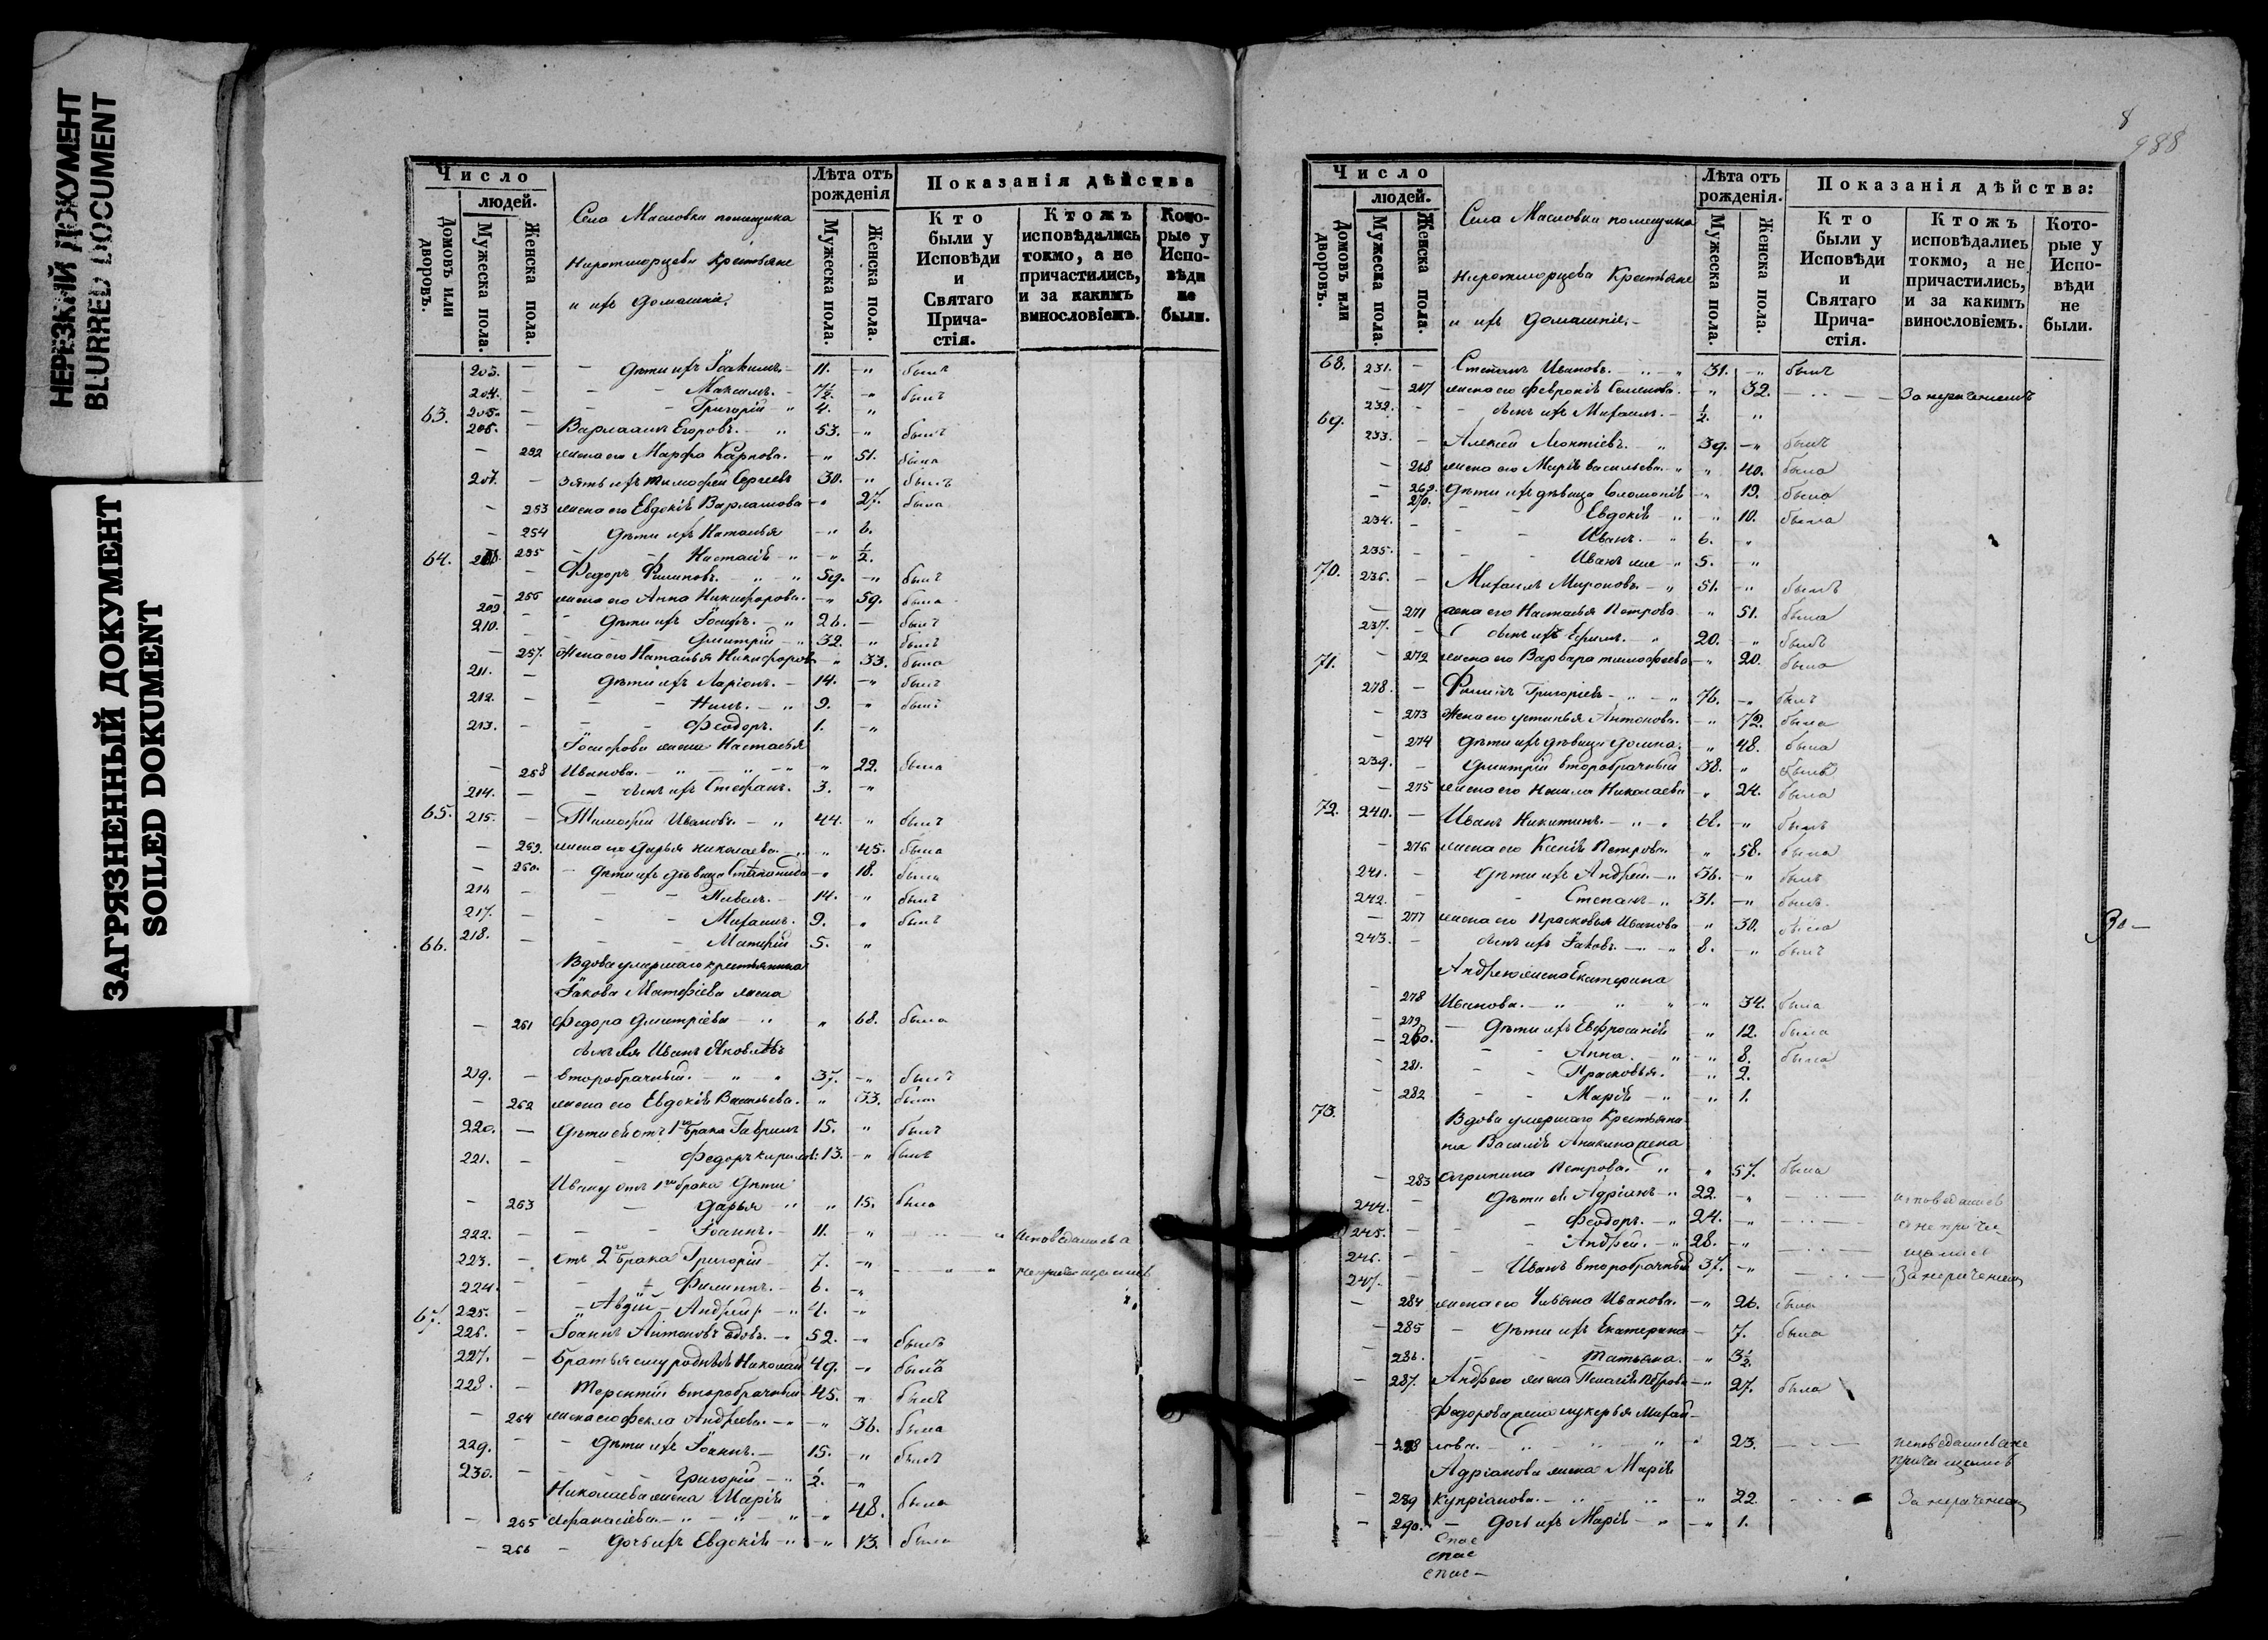 НЕРЕЗКИЙ ДОКУМЕНТ
BLURRED DOCUMENT
ЗАГРЯЗНЕННЫЙ ДОКУМЕНТ
SOILED DOKUMENT
Число
людей.
Домовъ или дворовъ.
Мужеска пола.
Женска пола.
Села Масловки помещика
Крестьяне
и ихъ домашніе.
Лѣта отъ рожденія
Мужеска пола.
Женска пола.
Показанія дѣйства
Кто были у Исповѣди и Святаго Причастія.
Ктожъ исповѣдались токмо, а не причастились, и за какимъ винословіемъ.
Которые у Исповѣди не были.
203. — Дѣти ихъ Іоакимъ 11. былъ
204. — Максимъ 7½ былъ
205. — Григорій 4.
63. 206. — Варлаамъ Егоровъ 53. былъ
— 252 жена его Марфа Карпова 51. была
207. — зять ихъ Тимофей Сергеевъ 30. былъ
— 253 жена его Евдокія Варламова 27. была
— 254 Дѣти ихъ Наталья 6.
255 Настасія ½
64. 208. — Федоръ Филиповъ 59. былъ
— 256 жена его Анна Никифорова 59. была
209 Дѣти ихъ Іосифъ 26. былъ
210. — Дмитрій 32. былъ
— 257. Жена его Наталья Никифорова 33. была
211. — Дѣти ихъ Ларіонъ 14. былъ
212. — 9. былъ
213. — Феодоръ 1.
Іосифова жена Настасья
— 258 Иванова 22. была
214. — сынъ ихъ Стефанъ 3.
65. 215. — Тимофей Ивановъ 44. былъ
— 259. жена его Дарья Николаева 45. была
— 260. Дѣти ихъ дѣвица Степанида 18. была
216 — Павелъ 14. былъ
217. — Михаилъ 9. былъ
218. — Матфій 5.
66. Вдова умершаго крестьянина
Іакова Матфіева жена
— 261 Федора Дмитріева 68. была
сынъ ея Иванъ Яковлевъ
219. — второбрачный 37. былъ
— 262 жена его Евдокія Васильева 33. была
220. — Дѣти ей отъ 1го брака Гавриилъ 15. былъ
221. — Федоръ 13. былъ
Ивану отъ 1го брака Дѣти
— 263 Дарья 15. была
222. — Іоаннъ 11. исповѣдались а
223. — отъ 2го брака Григорій 7. не причащались
224. — Филиппъ 6.
225. — Авдій Андрей 4.
67. 226. — Іоаннъ Антоновъ вдовъ 52. былъ
227. — Братья ему родные Николай 49. былъ
228. — Терентій второбрачный 45. былъ
— 264 жена его Фекла Андреева 36. была
229. — Дѣти ихъ Іоаннъ 15. былъ
230. — Григорій ½
Николаева жена Марія
— 265 Афанасіева 48. была
— 266 Дочь ихъ Евдокія 13. была
8
988
Число
людей.
Домовъ или дворовъ.
Мужеска пола.
Женска пола.
Села Масловки помещика
Крестьяне
и ихъ домашніе.
Лѣта отъ рожденія.
Мужеска пола.
Женска пола.
Показанія дѣйства:
Кто были у Исповѣди и Святаго Причастія.
Ктожъ исповѣдались токмо, а не причастились, и за какимъ винословіемъ.
Которые у Исповѣди не были.
68. 231. — Степанъ Ивановъ 31. былъ
— 267 жена его Февронія Семенова 32. За нераченіемъ
232. — сынъ ихъ Михаилъ ½
69. 233. — Алексей Леонтіевъ 39. былъ
— 268 жена его Марія Васильева 40. была
— 269. Дѣти ихъ дѣвица Соломонія 19. была
— 270. Евдокія 10. была
234. — Иванъ 6.
235. — Иванъ же 5.
70. 236. — Михаилъ Мироновъ 51. былъ
— 271 жена его Настасья Петрова 51. была
237. — сынъ ихъ Ефимъ 20. былъ
— 272 жена его Варвара Тимофеева 20. была
71. 278. — Филипъ Григоріевъ 76. былъ
— 273 Жена его Устинья Антонова 72. была
— 274 Дѣти ихъ дѣвица Домна 48. была
239. — Дмитрій второбрачный 38. былъ
— 275 жена его Николаева 24. была
72. 240. — Иванъ Никитинъ 61. былъ
— 276 жена его Ксенія Петрова 58. была
241. — Дѣти ихъ Андрей 36. былъ
242. — Степанъ 31. былъ
— 277 жена его Прасковья Иванова 30. была
243. — сынъ ихъ Іаковъ 8. былъ
Андрея жена Екатерина
— 278 Иванова 34. была
— 279 Дѣти ихъ Евфросинія 12. была
— 280. Анна 8. была
281. Прасковья 2.
— 282 Марія 1.
73. Вдова умершаго Крестьяни-
на Василія Аникина жена
— 283 Агрипина Петрова 57. была
244. Дѣти ей Адріанъ 22. исповѣдались
245. — Феодоръ 24. а не прича-
246. — Андрей 28. щались
247. — Иванъ второбрачный 37. За нераченіем
— 284 жена его Ульяна Иванова 26. была
— 285 Дѣти ихъ Екатерина 7. была
— 286. Татьяна 3½
— 287. Андрея жена Пелагія Петрова 27. была
Федорова жена Лукерья Михай-
— 288 лова 23. исповѣдались а не
причащались
Адріанова жена Марія
— 289 Купріанова 22. За нераченіем
— 290. Дочь ихъ Марія 1.
Спас
спас
спас